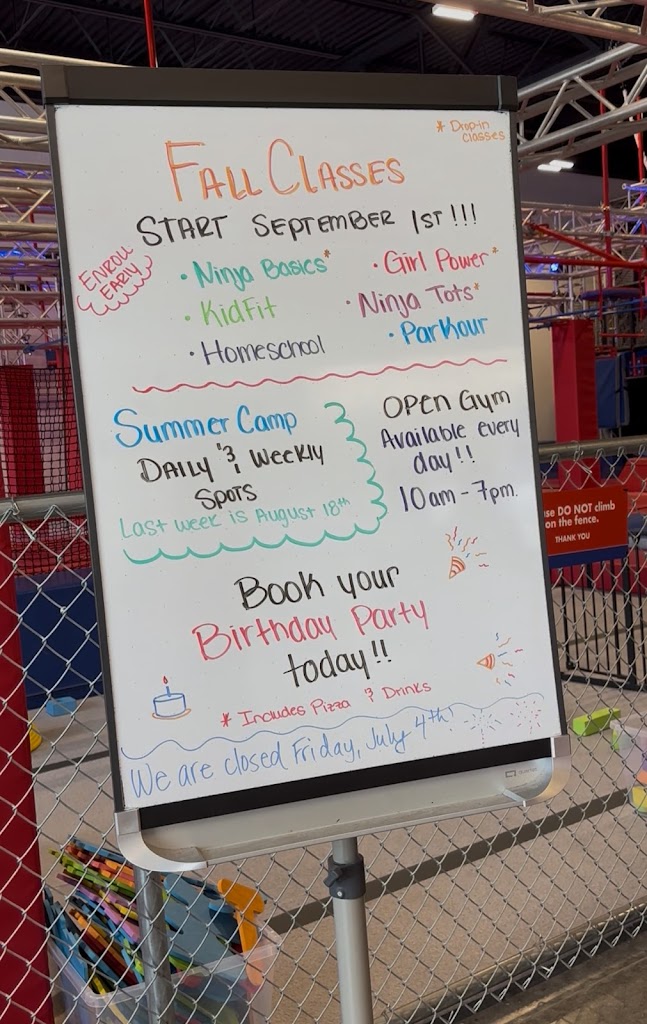 * Drop-in
classes
FALL CLASSES
START SEPTEMBER 1ST!!!
ENROLL
EARLY
• Ninja Basics*
• Girl Power*
• KidFit
• Ninja Tots*
• Homeschool
• Parkour
Summer Camp
DAILY & Weekly
SPOTS
Last week is August 18th
OPEN Gym
Available every
day!!
10am - 7pm.
Book your
Birthday Party
today!!
* Includes Pizza & Drinks
We are closed Friday, July 4th!
se DO NOT climb
on the fence.
THANK YOU